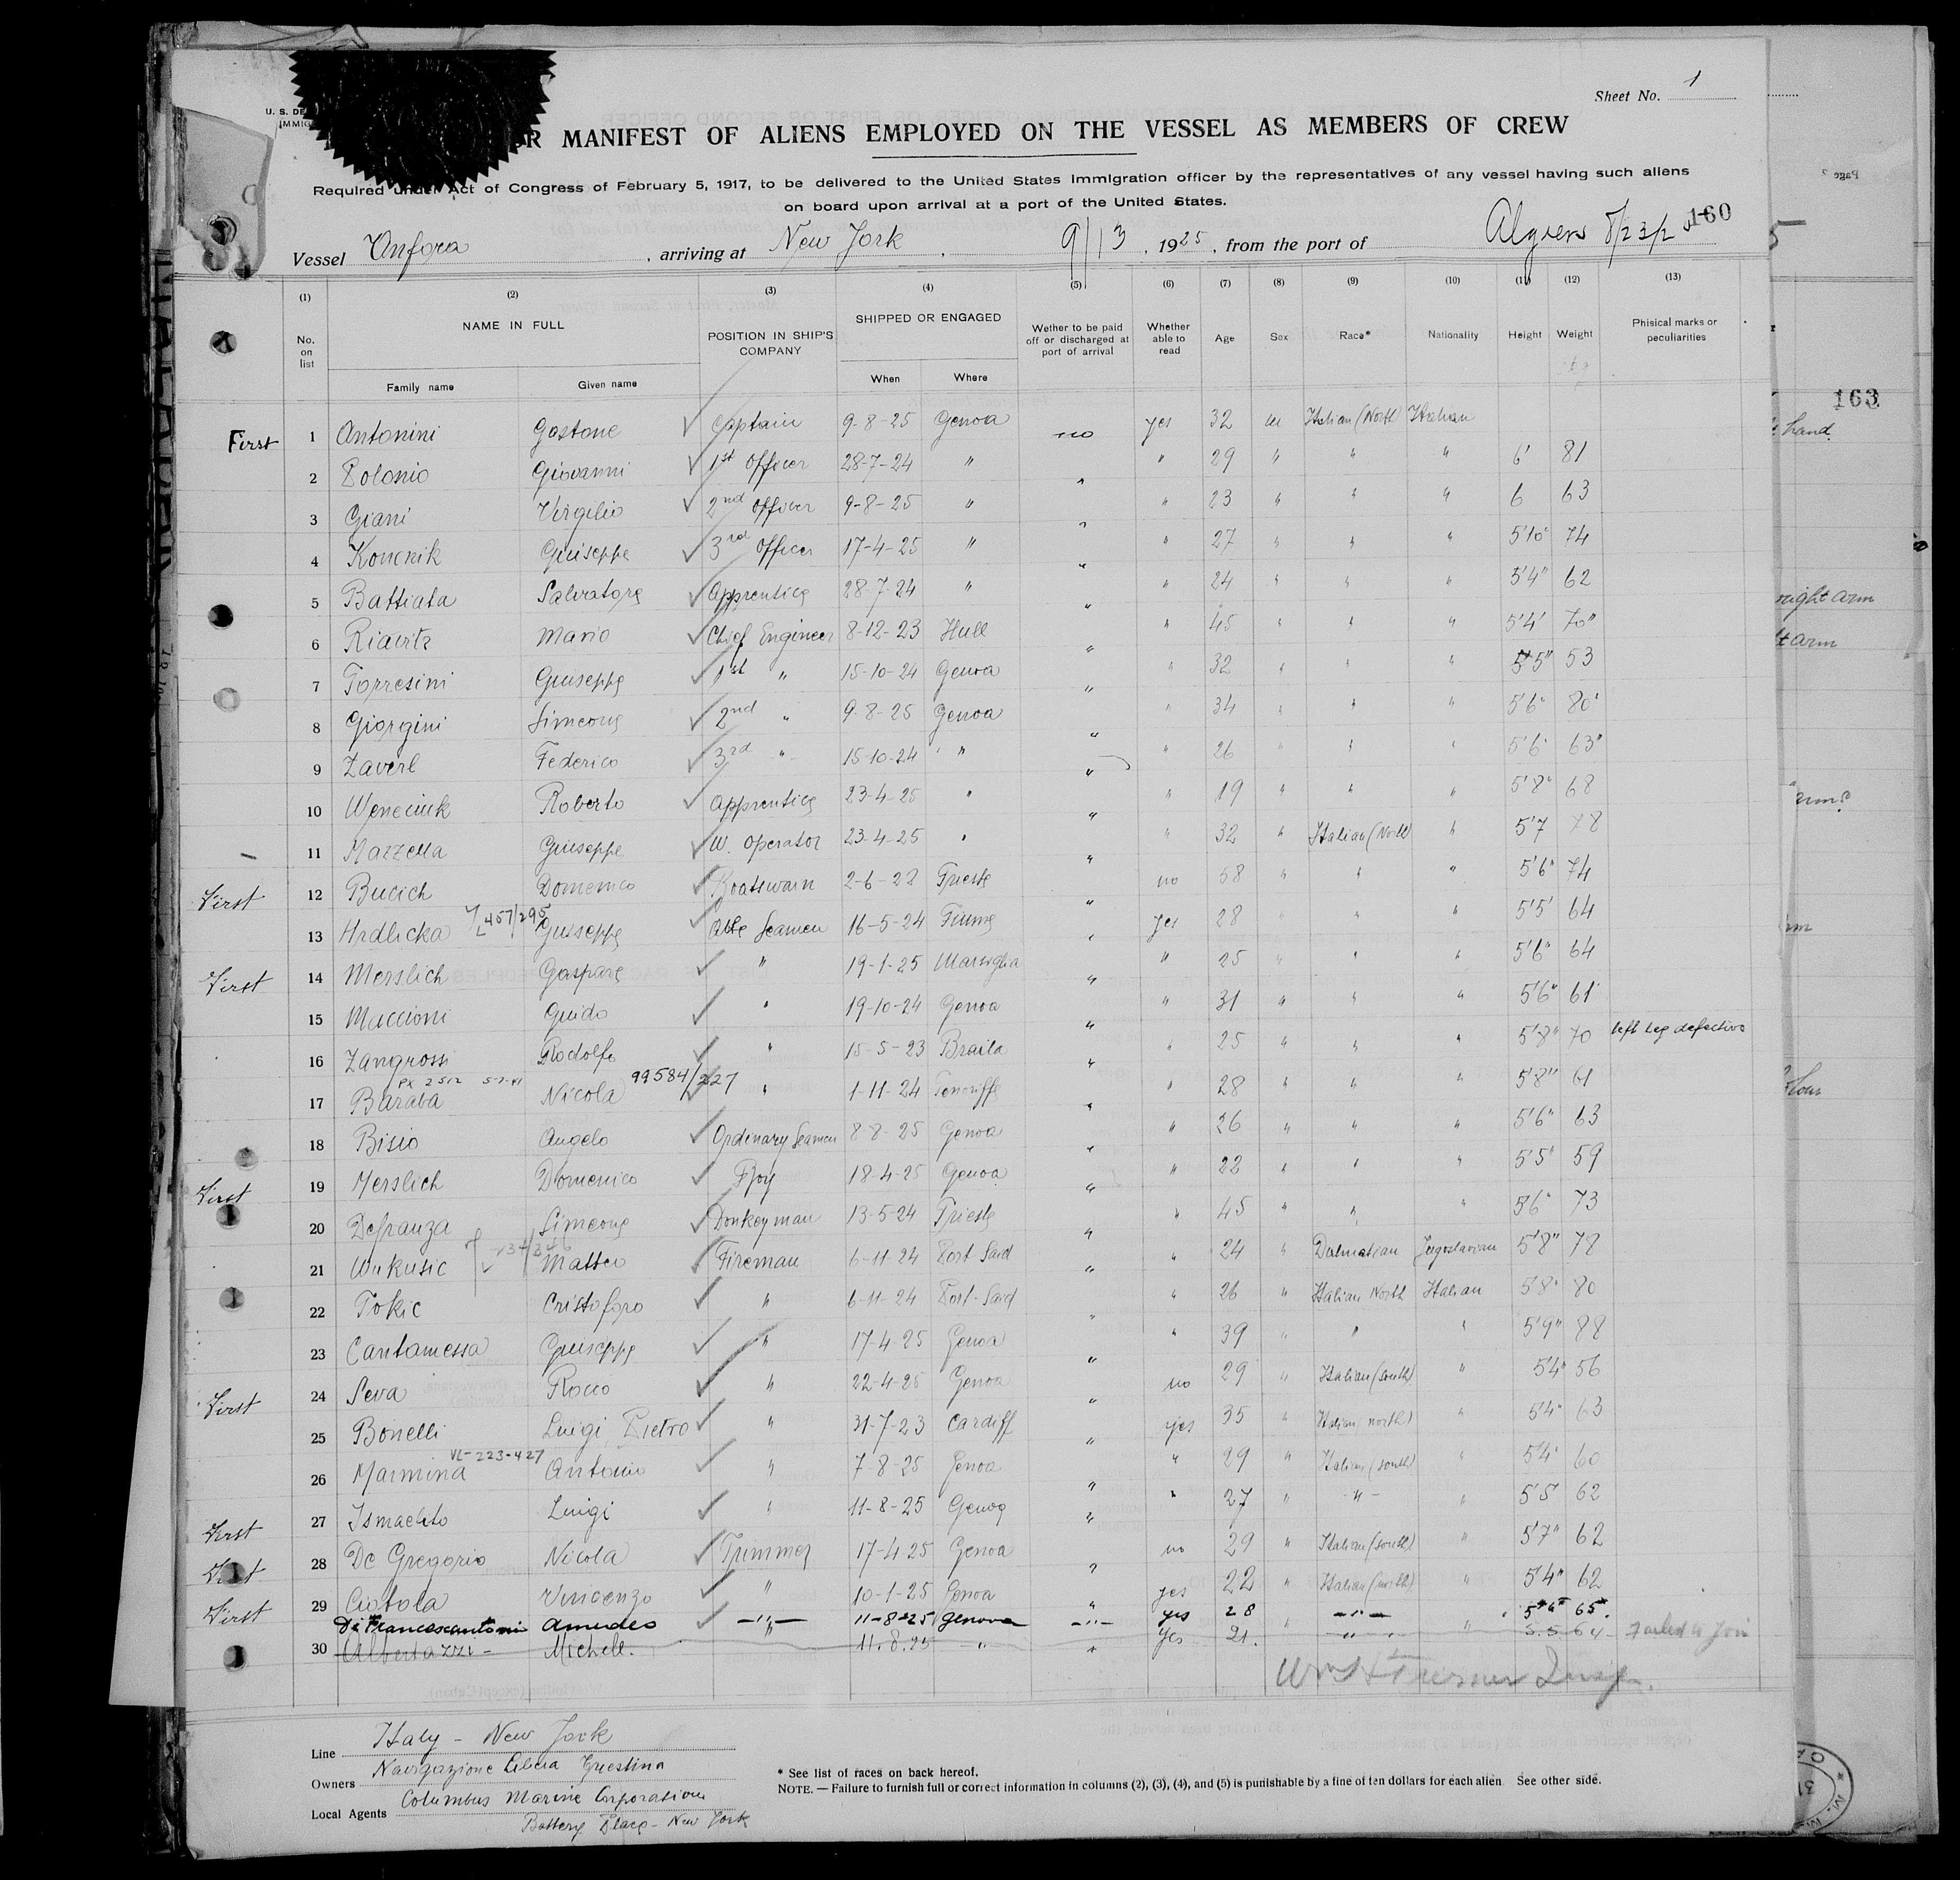 Sheet No. 1
U. S. DE
IMMIG
R MANIFEST OF ALIENS EMPLOYED ON THE VESSEL AS MEMBERS OF CREW
Required under Act of Congress of February 5, 1917, to be delivered to the United States Immigration officer by the representatives of any vessel having such aliens
on board upon arrival at a port of the United States.
160
Vessel Anfora , arriving at New York 9/13 , 1925 , from the port of Algiers 8/23/25
(1) (2) (3) (4) (5) (6) (7) (8) (9) (10) (11) (12) (13)
No. on list NAME IN FULL POSITION IN SHIP'S COMPANY SHIPPED OR ENGAGED Wether to be paid off or discharged at port of arrival Whether able to read Age Sex Race* Nationality Height Weight Phisical marks or peculiarities
Family name Given name When Where
First 1 Antonini Gastone Captain 9-8-25 Genoa no yes 32 m Italian (North) Italian
2 Polonio Giovanni 1st Officer 28-7-24 " " " 29 " " " 6' 81
3 Giani Virgilio 2nd Officer 9-8-25 " " " 23 " " " 6 63
4 Koncnik Guiseppe 3rd Officer 17-4-25 " " " 27 " " " 5'10" 74
5 Battiata Salvatore Apprentice 28-7-24 " " " 24 " " " 5'4" 62
6 Riavitz Mario Chief Engineer 8-12-23 Hull " " 45 " " " 5'4' 70"
7 Torresini Guiseppe 1st " 15-10-24 Genoa " " 32 " " " 5'5" 53
8 Giorgini Simeone 2nd " 9-8-25 Genoa " " 34 " " " 5'6" 80'
9 Zaverl Federico 3rd " 15-10-24 " " " 26 " " " 5'6' 63"
10 Weneciuk Roberto Apprentice 23-4-25 " " " 19 " " " 5'8" 68
11 Mazzella Giuseppe W. Operator 23-4-25 " " " 32 " Italian (North) " 5'7 78
First 12 Bucich Domenico Boatswain Trieste " no 58 " " " 5'6" 74
13 Hrdlicka 457/295 Guseppe Able Seamen 16-5-24 Fiume " yes 28 " " " 5'5' 64
First 14 Merslich Gaspare " 19-1-25 Marsiglia " " 25 " " " 5'6" 64
15 Maccioni Guido " 19-10-24 Genoa " " 31 " " " 5'6" 61
16 Zangrossi Rodolfo " 15-5-23 Braila " " 25 " " " 5'8" 70 left leg defective
17 Baraba Nicola 99584/227 " 1-11-24 Teneriffe " " 28 " " " 5'8" 61
18 Bisio Angelo Ordinary Seamen 8-8-25 Genoa " " 26 " " " 5'6" 63
First 19 Merslich Domenico Boy 18-4-25 Genoa " " 22 " " " 5'5' 59
20 Defranza Simeone Donkeyman 13-5-24 Trieste " " 45 " " " 5'6" 73
21 Wukusic Matteo Fireman 6-11-24 Port Said " " 24 " Dalmatian Jugoslavian 5'8" 78
22 Tokic Cristoforo " 6-11-24 Port-Said " " 26 " Italian North Italian 5'8" 80
23 Cantamessa Guiseppe " 17-4-25 Genoa " " 39 " " " 5'9" 88
First 24 Seva Rocco " 22-4-25 Genoa " no 29 " Italian (south) " 5'4" 56
25 Bonelli Luigi Pietro " 31-7-23 Cardiff " yes 35 " Italian (north) " 5'4" 63
VL-223-427
26 Marmina Antonio " 7-8-25 Genoa " " 29 " Italian (south) " 5'4" 60
First 27 Ismaelito Luigi " 11-8-25 Genoa " " 27 " - " - " 5'5' 62
First 28 De Gregorio Nicola Trimmer 17-4-25 Genoa " no 29 " Italian (south) " 5'7" 62
First 29 Ciotola Vincenzo " 10-1-25 Genoa " yes 22 " Italian (north) " 5'4" 62
Di Francescantonio Amedeo - " - 11-8-25 Genova - " - yes 28 " - " - 65
30 Albertazzi - Michell. " 11.8.25 " " yes 21. " " " 5.5. 64 - Failed to Join
Line Italy - New York
Owners Navigazione Libera Triestina
Local Agents Columbus Marine Corporation
Battery Place - New York
* See list of races on back hereof.
NOTE. — Failure to furnish full or correct information in columns (2), (3), (4), and (5) is punishable by a fine of ten dollars for each alien. See other side.
163
hand.
right arm
arm